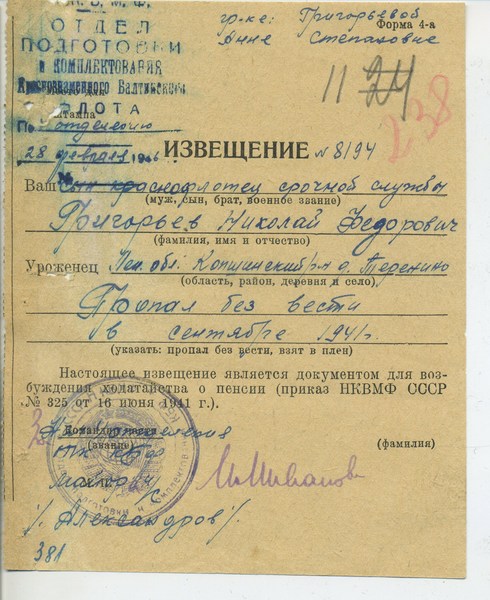 гр-ке: Григорьевой
Анне Степановне
Форма 4-а
ОТДЕЛ
ПОДГОТОВКИ
и КОМПЛЕКТОВАНИЯ
Краснознаменного Балтийского
ФЛОТА
штампа
По отделению
28 февраля 1946 г.
11 24
238
ИЗВЕЩЕНИЕ № 8/94
Ваш Сын краснофлотец срочной службы
(муж, сын, брат, военное звание)
Григорьев Николай Федорович
(фамилия, имя и отчество)
Уроженец Лен. обл. Капшинский р-н д. Теренино
(область, район, деревня и село),
Пропал без вести
в сентябре 1941 г.
(указать: пропал без вести, взят в плен)
Настоящее извещение является документом для воз-
буждения ходатайства о пенсии (приказ НКВМФ СССР
№ 325 от 16 июня 1941 г.).
Командир части
(звание)
(фамилия)
ПК КБФ
майор
/Александров/.
381